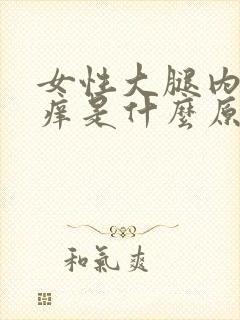 女性大腿内
痒是什麼原
和氣爽